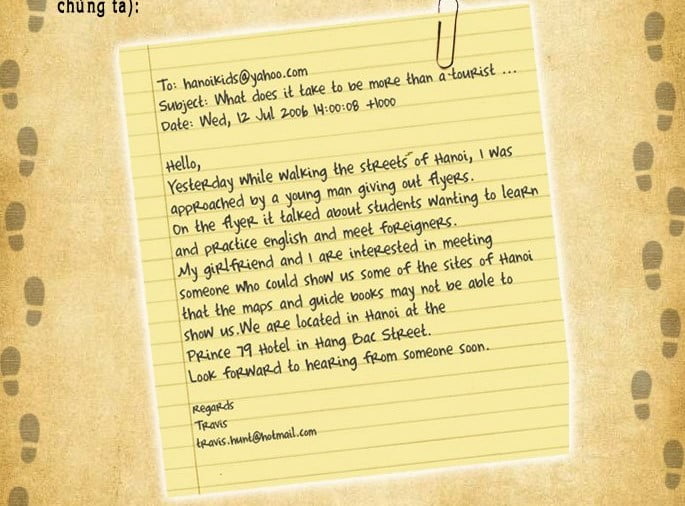 chúng ta):
To: hanoikids@yahoo.com
Subject: What does it take to be more than a tourist ...
Date: Wed, 12 Jul 2006 14:00:08 +1000
Hello,
Yesterday while walking the streets of Hanoi, I was
approached by a young man giving out flyers.
On the flyer it talked about students wanting to learn
and practice english and meet foreigners.
My girlfriend and I are interested in meeting
someone who could show us some of the sites of Hanoi
that the maps and guide books may not be able to
show us.We are located in Hanoi at the
Prince 79 Hotel in Hang Bac Street.
Look forward to hearing from someone soon.
Regards
Travis
travis.hunt@hotmail.com